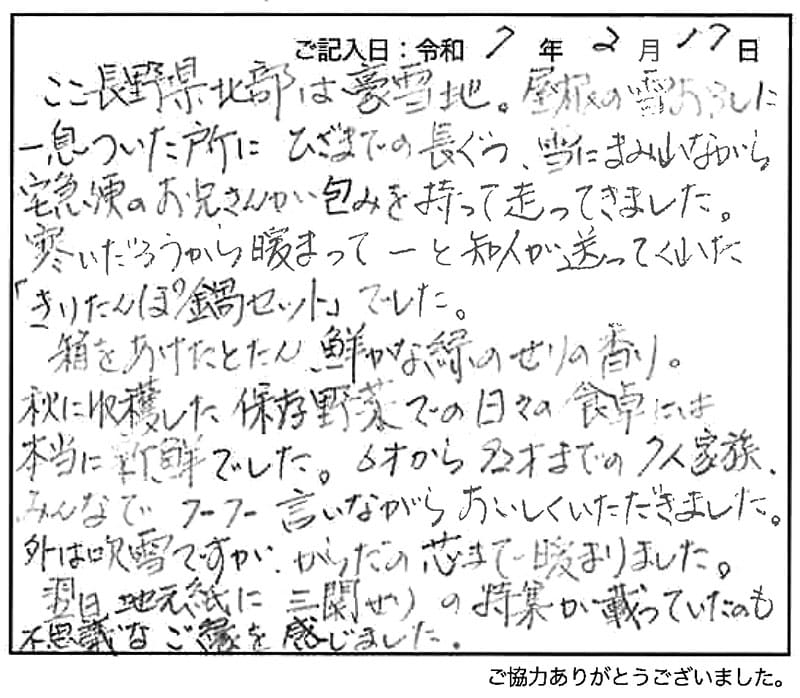 ご記入日：令和 7 年 2 月 17 日
ここ長野県北部は豪雪地。屋根の雪おろした
一息ついた所に ひざまでの長ぐつ、雪にまみれながら
宅急便のお兄さんが包みを持って走ってきました。
寒いだろうから暖まって ーと知人が送ってくれた
「きりたんぽ鍋セット」でした。
箱をあけたとたん、鮮かな緑のせりの香り。
秋に収穫した保存野菜での日々の食卓には
本当に新鮮でした。6才から92才までの7人家族、
みんなで フーフー言いながらおいしくいただきました。
外は吹雪ですが、からだの芯まで暖まりました。
翌日地元紙に 三関せりの特集が載っていたのも
不思議なご縁を感じました。
ご協力ありがとうございました。